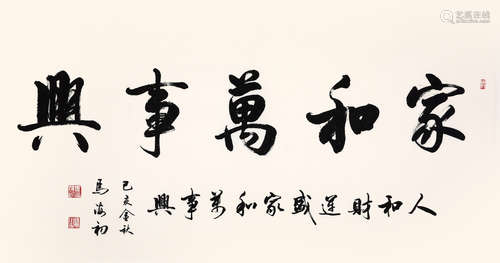 家和萬事興
人和財運盛家和萬事興
己亥金秋
馬海初
艺狐在线